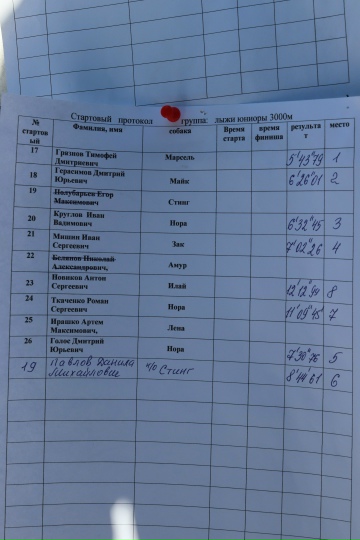 Стартовый протокол группа: лыжи юниоры 3000м
№ стартовый Фамилия, имя собака Время старта время финиша результат место
17 Грязнов Тимофей Дмитриевич Марсель 5'43"79 1
18 Герасимов Дмитрий Юрьевич Майк 6'26"01 2
19 Полубарьев Егор Максимович Стинг
20 Круглов Иван Вадимович Нора 6'32"45 3
21 Мишин Иван Сергеевич Зак 7'02"26 4
22 Беляков Николай Александрович, Амур
23 Новиков Антон Сергеевич Илай 12'12"94 8
24 Ткаченко Роман Сергеевич Нора 11'09"45 7
25 Ирашко Артем Максимович, Лена
26 Голос Дмитрий Юрьевич Нора 7'30"76 5
19 Павлов Данила Михайлович Стинг 8'44"61 6